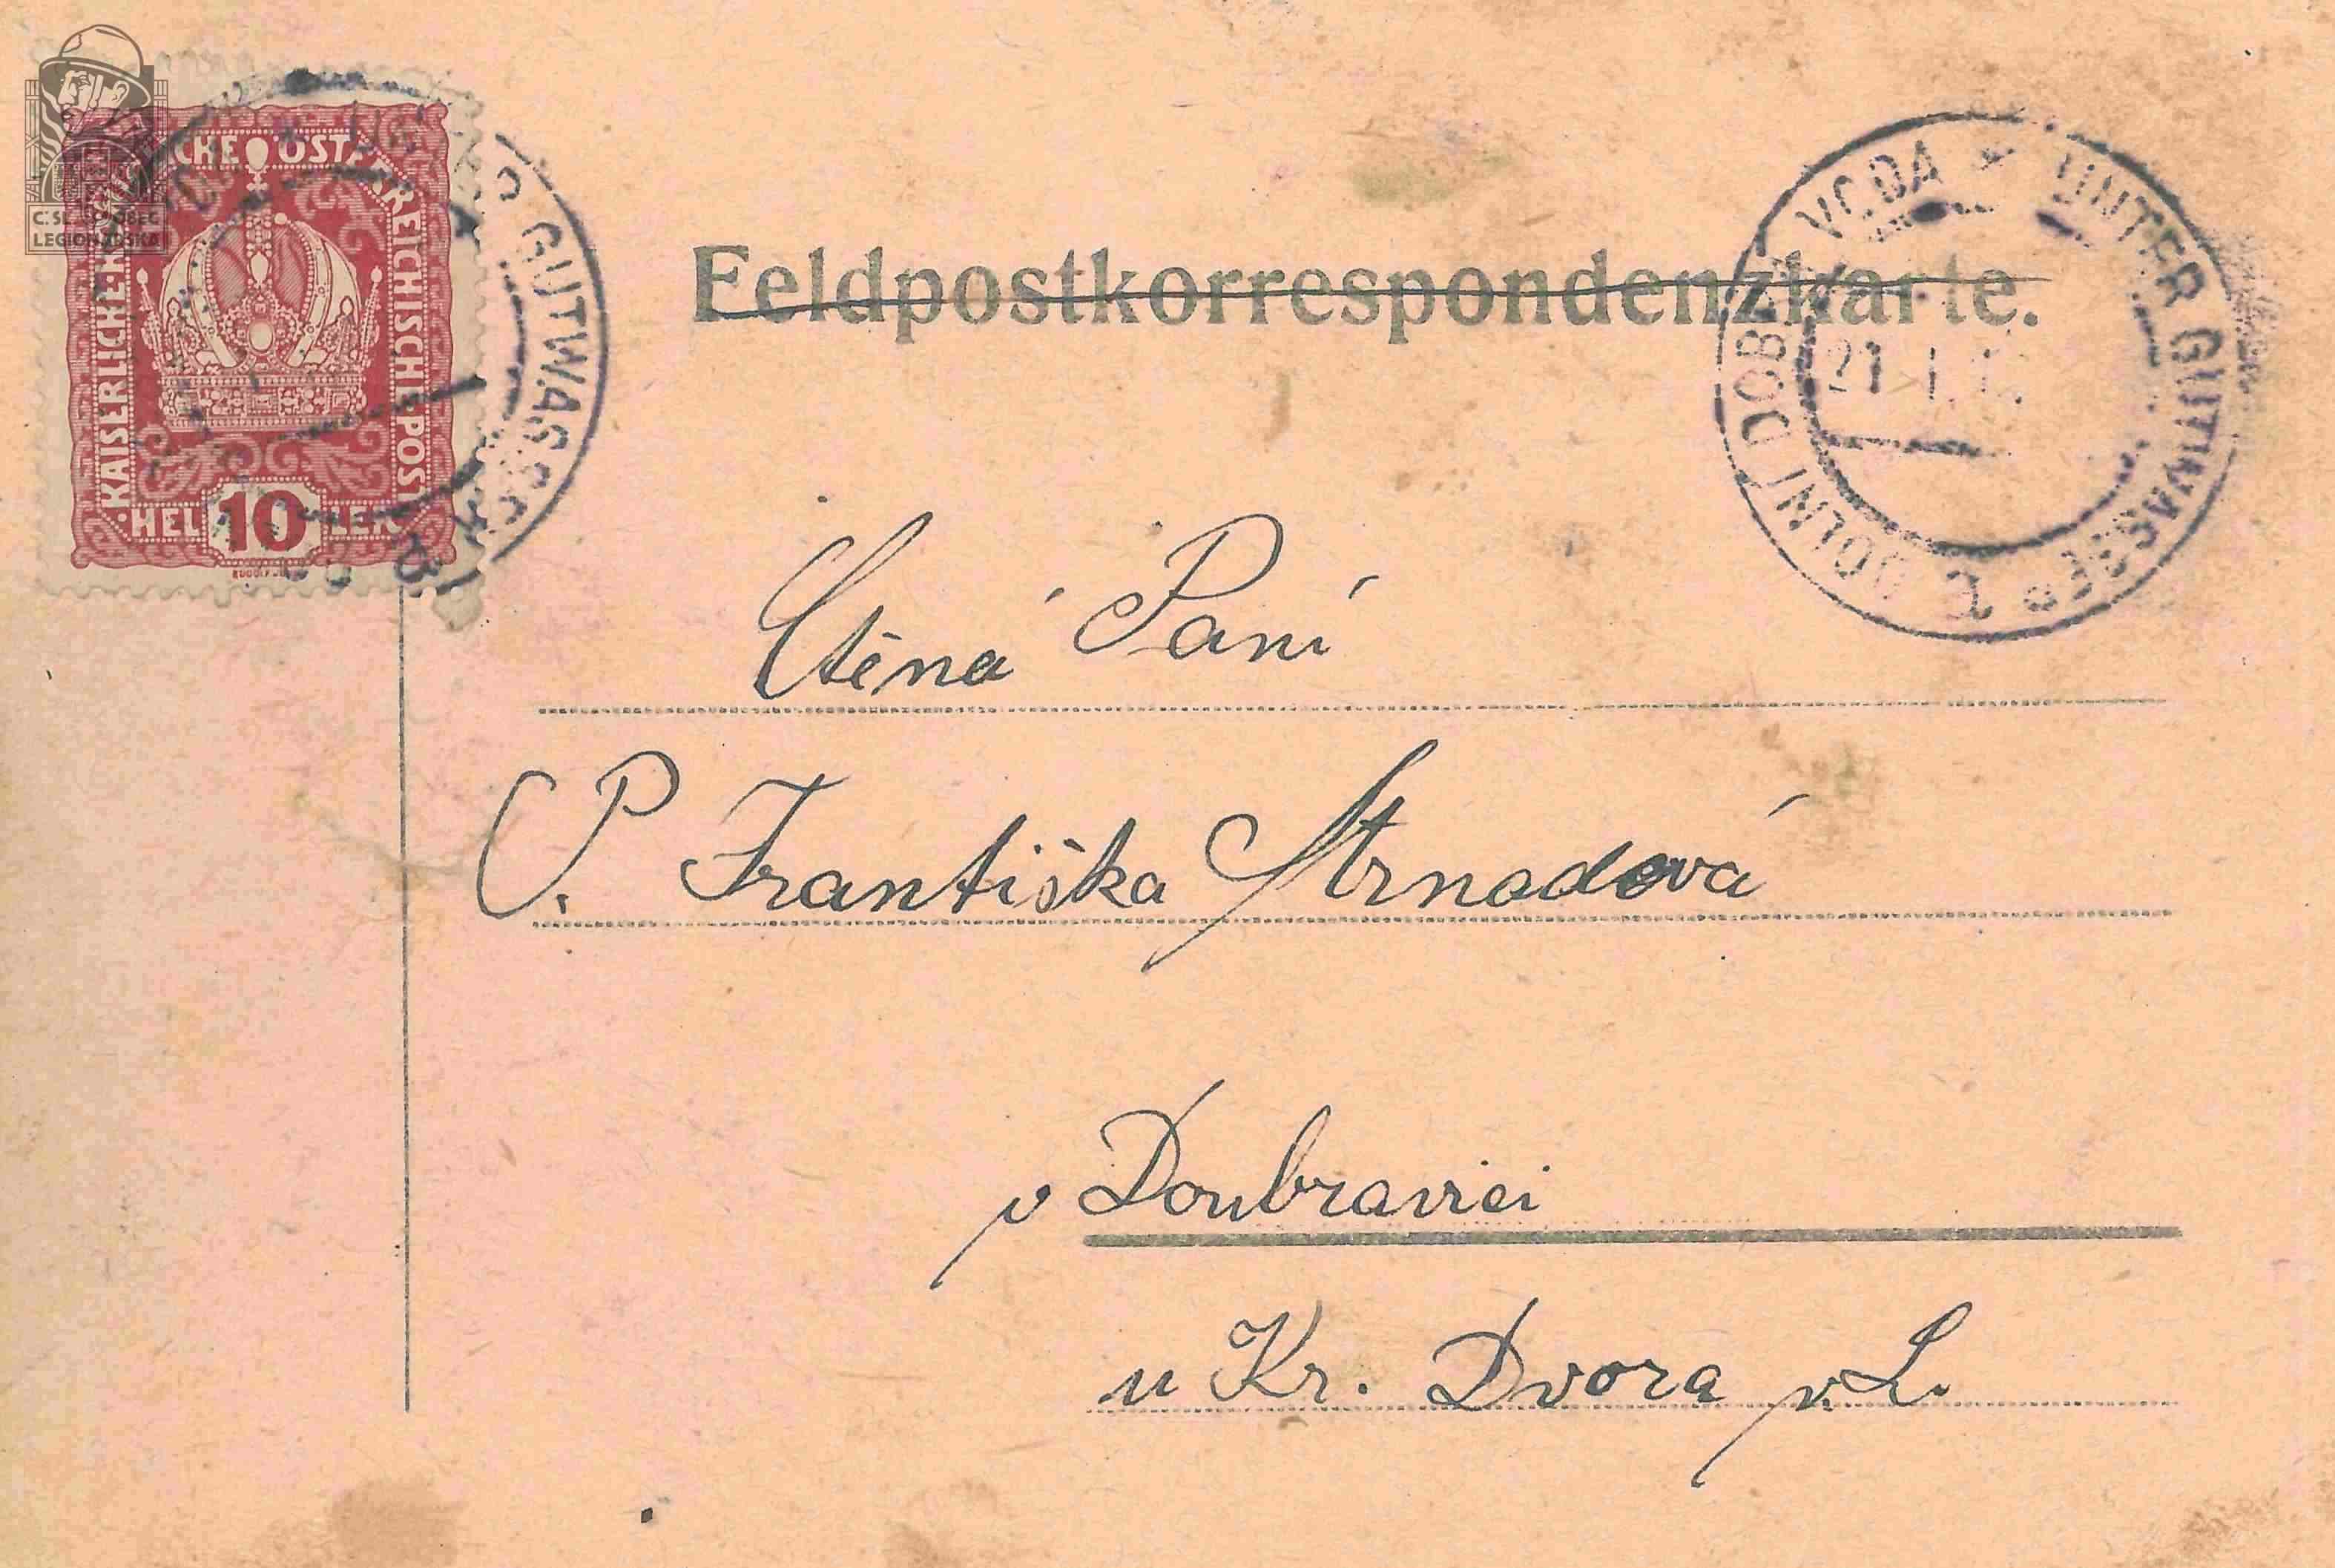 KAISERLICHE KÖNIGLICHE ÖSTERREICHISCHE POST
HELLER
10
Č.SL. OBEC
LEGIONÁŘSKÁ
GUTWASSER
DOLNÍ DOBRÁ VODA * UNTER GUTWASSER
21 I
Feldpostkorrespondenzkarte.
Ctěná Paní
P. Františka Strnadová
v Doubravici
u Kr. Dvora n. L.